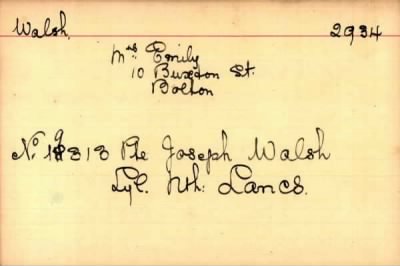 Walsh. 2934
Mrs Emily
10 Buxton St.
Bolton
No. 19818 Pte Joseph Walsh
Lyl. Nth: Lancs.